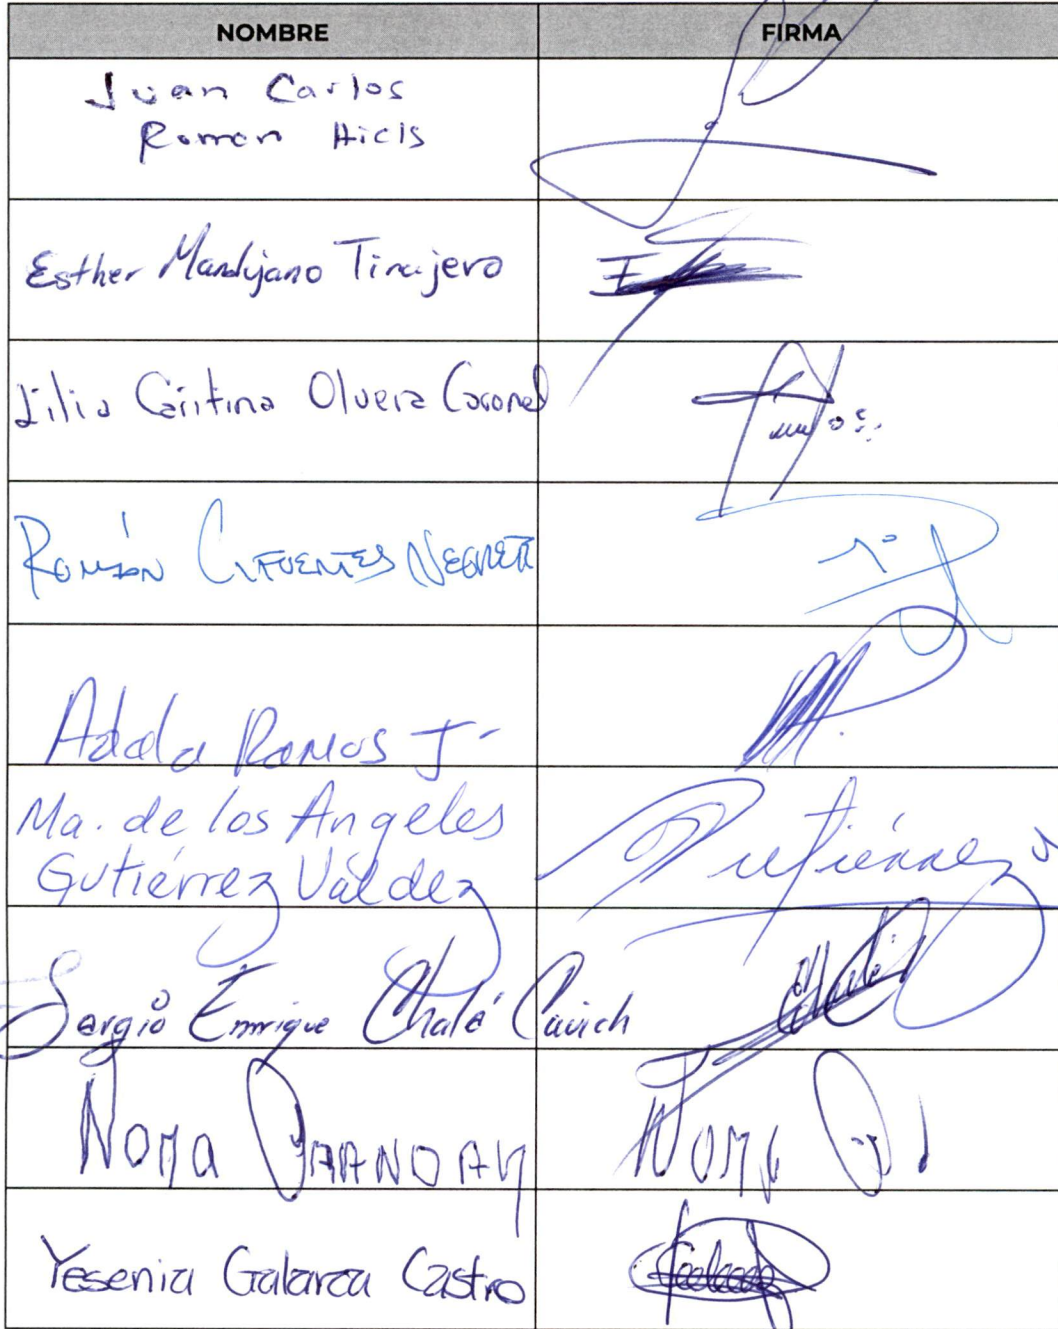 NOMBRE FIRMA
Juan Carlos
Roman Hicls
Esther Mandujano Tinajero
Lilia Cristina Olvera Coronel
ROMÁN CIFUENTES NEGRETE
Adela Ramos J.
Ma. de los Angeles
Gutiérrez Valdez Gutiérrez
Sergio Enrique Chalé Cauich
NOMA
Yesenia Galarza Castro